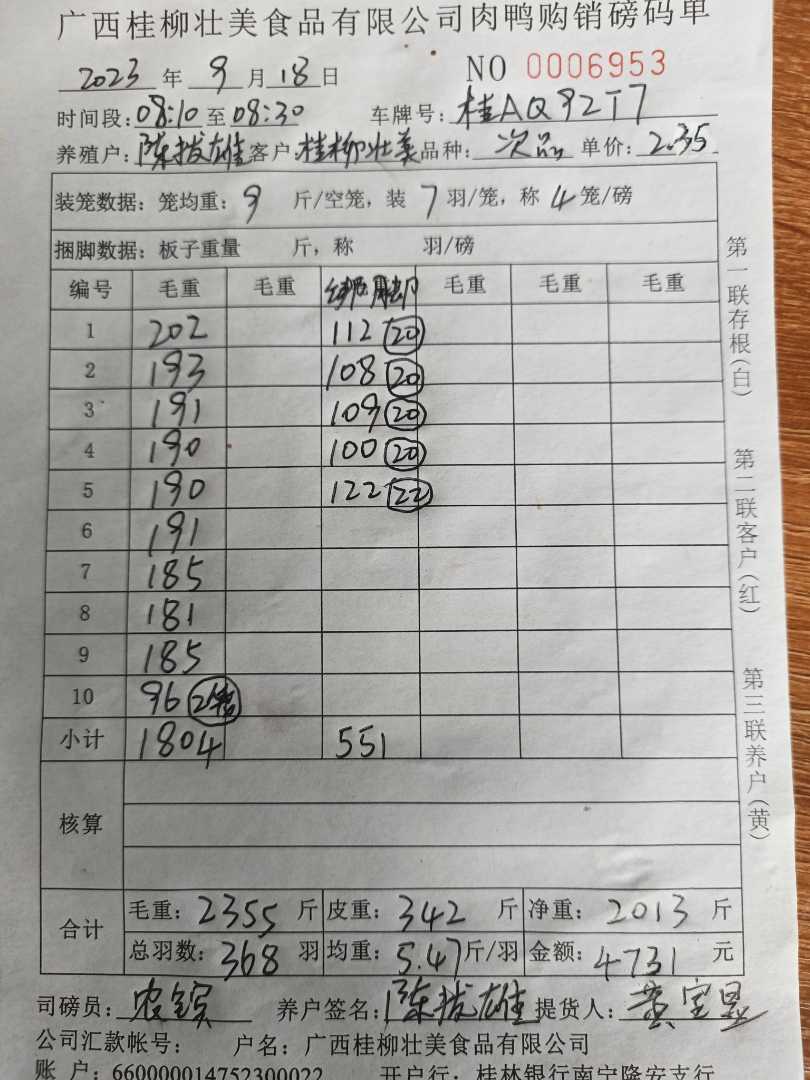 广西桂柳壮美食品有限公司肉鸭购销磅码单
2023 年 9 月 18 日 NO 0006953
时间段: 08:10 至 08:30 车牌号: 桂AQ92T7
养殖户: 陈拔雄 客户: 桂柳壮美 品种: 次品 单价: 2.35
装笼数据: 笼均重: 9 斤/空笼, 装 7 羽/笼, 称 4 笼/磅
捆脚数据: 板子重量 斤, 称 羽/磅
编号 毛重 毛重 绑脚 毛重 毛重 毛重
1 202 112 20
2 193 108 20
3 191 109 20
4 190 100 20
5 190 122 22
6 191
7 185
8 181
9 185
10 96 2笼
小计 1804 551
核算
合计 毛重: 2355 斤 皮重: 342 斤 净重: 2013 斤
总羽数: 368 羽 均重: 5.47 斤/羽 金额: 4731 元
司磅员: 农 养户签名: 陈拔雄 提货人: 黄宝
公司汇款帐号: 户名: 广西桂柳壮美食品有限公司
账 户: 660000014752300022 开户行: 桂林银行南宁隆安支行
第一联存根(白)
第二联客户(红)
第三联养户(黄)